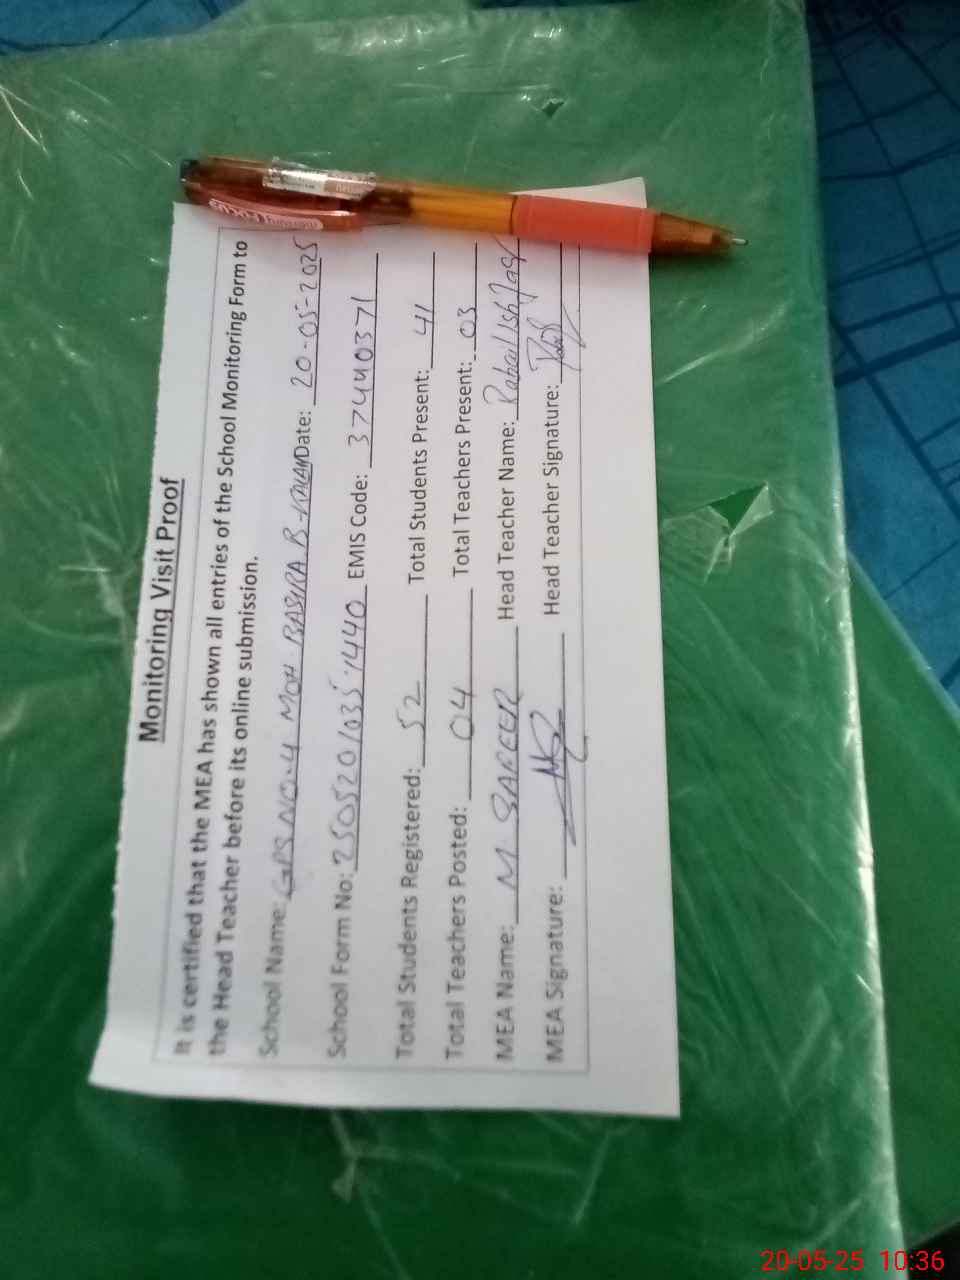 Monitoring Visit Proof
It is certified that the MEA has shown all entries of the School Monitoring Form to
the Head Teacher before its online submission.
School Name: GPS NO.4 MOH BASIRA B-KALAN Date: 20-05-2025
School Form No: 2505201035.1440 EMIS Code: 37440371
Total Students Registered: 52 Total Students Present: 41
Total Teachers Posted: 04 Total Teachers Present: 03
MEA Name: M SAFEER Head Teacher Name:
MEA Signature: Head Teacher Signature:
20-05-25 10:36